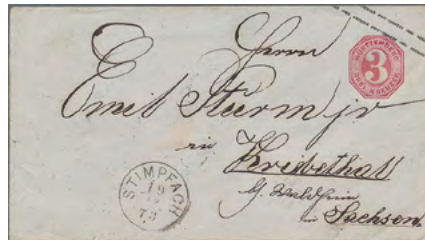 Herrn
Emil Sturm jr
in
Kriebethal
b/ Waldheim
in Sachsen.
WÜRTTEMBERG
3
DREI KREUZER
STIMPFACH
19
73